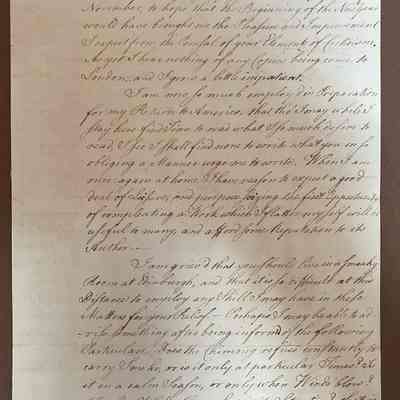 November, to hope that the Beginning of the New Year
would have brought me the Pleasure and Improvement
I expect from the Perusal of your Elements of Criticism.
As yet I hear nothing of any Copies being come to
London, and I grow a little impatient.
I am now so much employ'd in Preparation
for my Return to America, that tho' I may while I
stay here find Time to read what I so much desire to
read, I fee I shall find none to write what you in so
obliging a Manner urge me to write. When I am
once again at home, I have reason to expect a good
deal of Leisure, and purpose seizing the first Opportunity
of compleating a Work which I flatter myself will be
useful to many, and afford some Reputation to its
Author.—
I am griev'd that you should live in a smoaky
House at Edinburgh, and that it is so difficult at this
Distance to employ any Skill I may have in these
Matters for your Relief.— Perhaps I may be able to ad-
vise something after being inform'd of the following
Particulars. Does the Chimney refuse constantly to
carry Smoke, or is it only at particular Times? Is
it in a calm Season, or only when Winds blow?